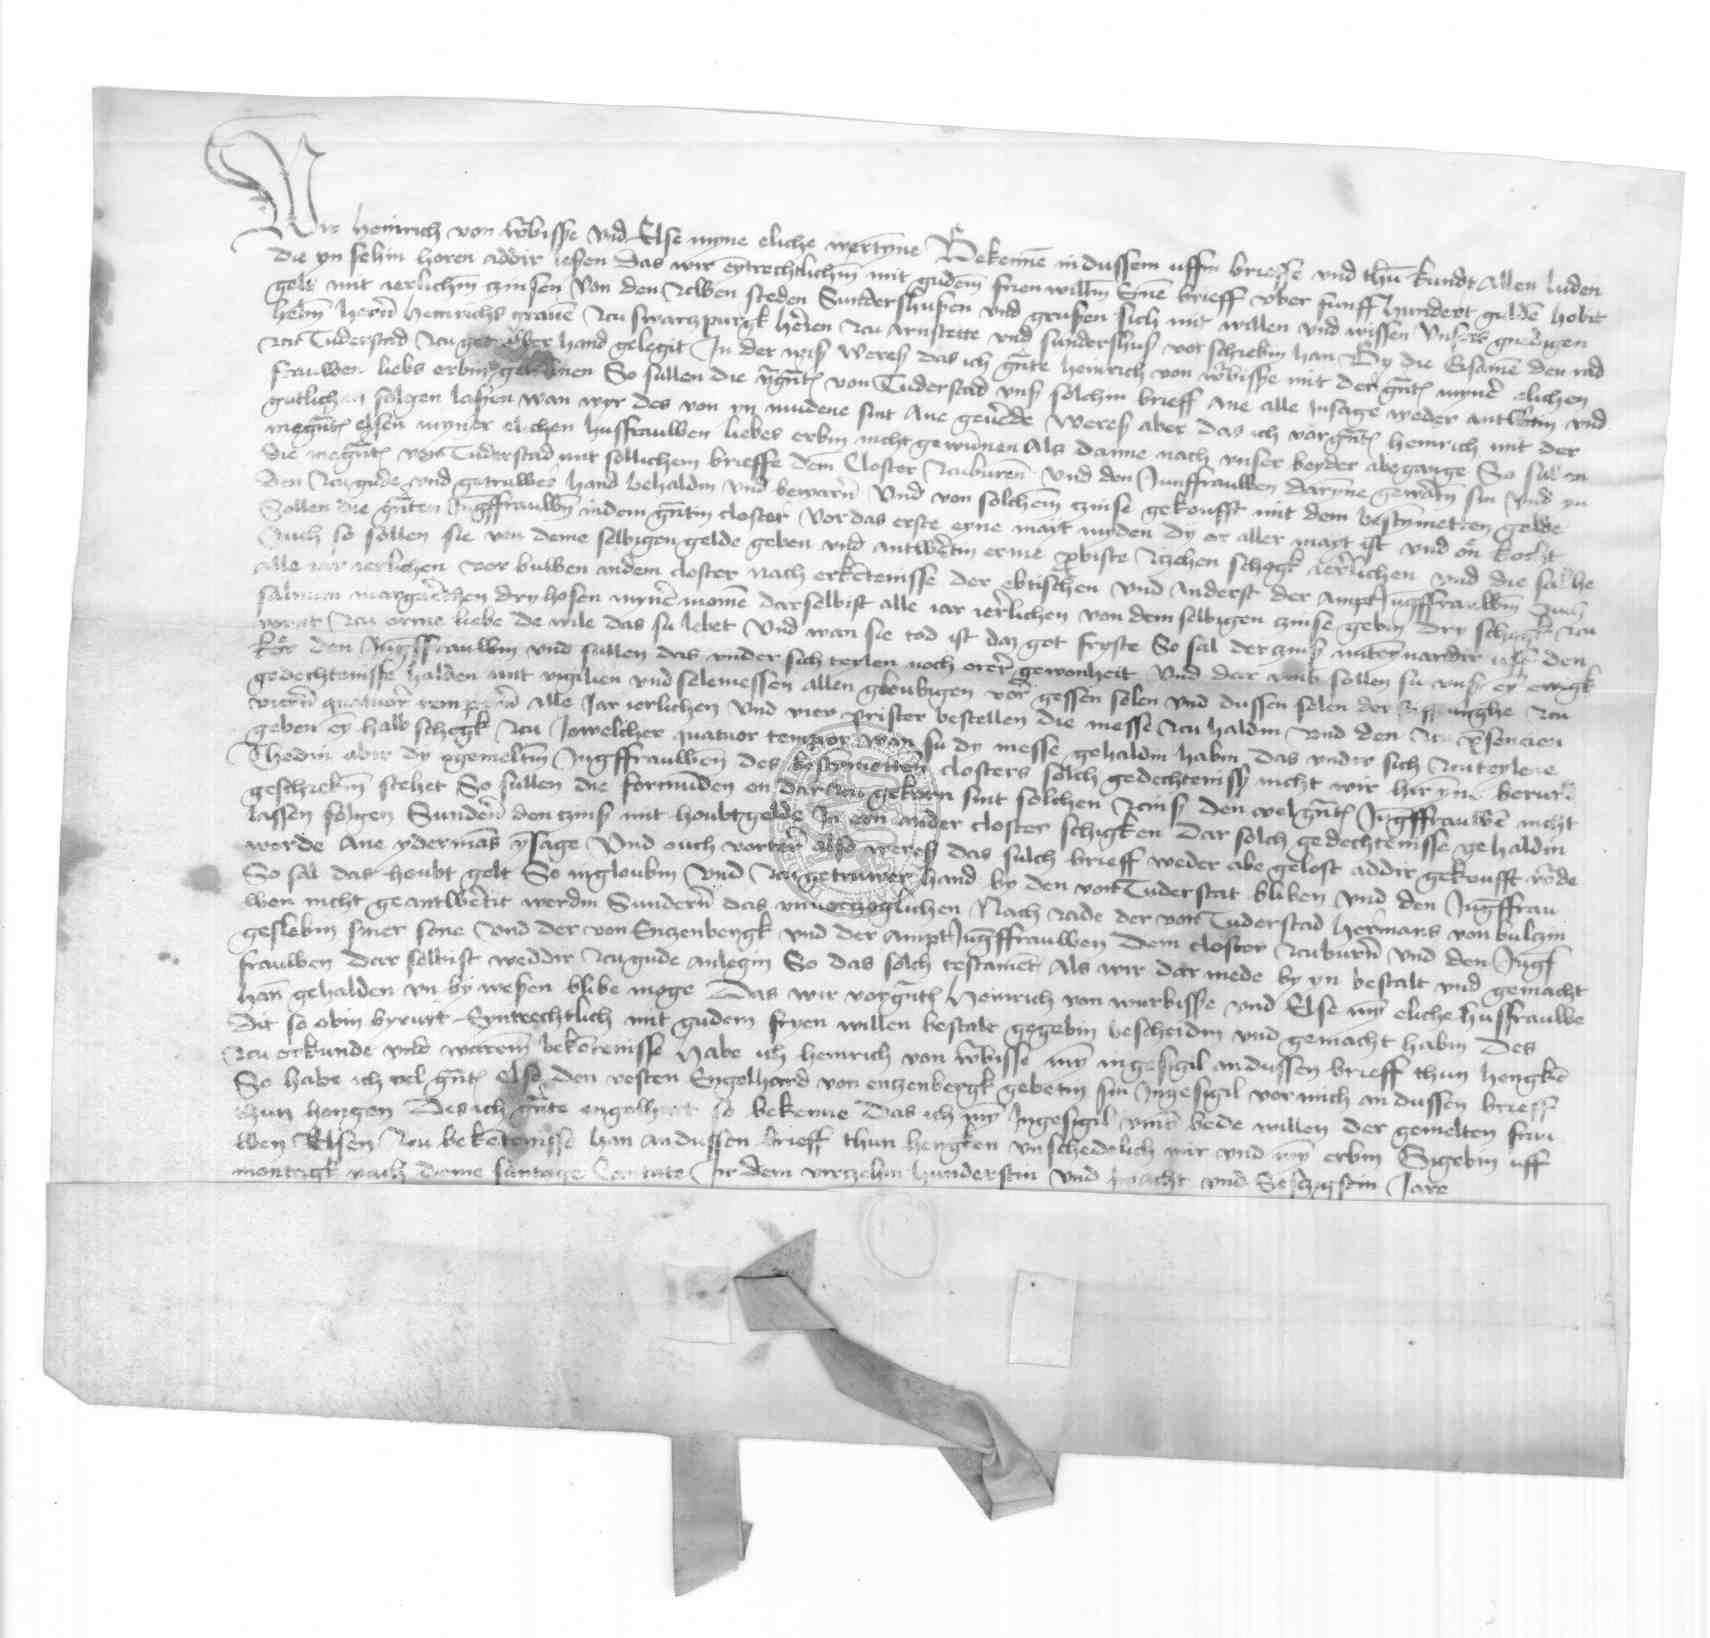 Wir Heinrich von worbisße vnd Else myne eliche wertynne Bekennē in dussem uffin brieffe vnd thū kundt allen luden
die yn sehin horen addir leßen das wir eyntrechtlichin mit gudem frien willin Eynē brieff vber funff hundert guldē hobit
gelt mit jerlichin czinsen von den steden Sundershußen vnd grußen sich mit willen vnd wissen vnsers gnedigen
herrn hern Heinrichs grauen zcu swarczpurgk herren zcu arnstette vnd sundershuß vorschrebin han By die Ersamen den rad
zcu Tuderstad zcu hand gelegit In der wiß wereß das ich gnte heinrich von worbisße mit der gnt mynē elichen
frauwen liebs erbin So sullen die gnt von Tuderstad vnß solchin brieff ane alle insage weder antwertin vnd
gutlichen folgen laßen wan wyr des von yn mudene sint Ane geuerde wereß aber das ich vorgnt heinrich mit der
elsen myner elichen hußfrauwen liebes erbin nicht gewunnen Als danne nach vnser beyder abegange So sullen
die von Tuderstad mit sollichem brieffe dem Closter zcuburen vnd den Junffrauwen darynne gewertin sin vnd yn
den zcu gude vnd getruwer hand behaldin vnd bewarn Vnd von solchem czinse gekoufft mit dem bestymetten gelde
Sollen die gnten Jungffrauwen in dem gntin closter vor das erste eyne mart myden dy er aller mayt ist vnd
Auch so sollen sie von deme selbigen gelde geben vnd antwertin erme probiste zcehen schogk jerlichen vnd die sal he
Alle jar jerlichen vor buwen an dem closter nach erkentenisse der ebtischen vnd Anderst der ampt Jungffrauwen Auch
sal man margrethen dryhosen myner momen darselbist alle jar jerlichen von dem selbigen czinse gebin dry schogk zcu
zcu orme liebe de wile das su lebet Vnd wan sie tod ist daz got friste So sal der czinß mit eynandir den
den Jungffrauwen vnd sullen das vnder sich teylen noch orer gewonheit Vnd dar vmb sollen su vnß ey ewigk
gedechtenisse halden mit vigilien vnd selemessen allen gloubigen vor gessen selen vnd dussen selen der zcu
quatuor temporn Alle Jar jerlichen Vnd vier prister bestellen die messe zcu haldin vnd den zcu presencien
geben ey halb schogk zcu Jowelcher quatuor tempor wan su dy messe gehaldin habin das vndir sich zcu teylene
Thedin abir dy Jungffrauwen des bestymetten closters solch gedechteniß nicht wir hir yn berurt
geschrebin stehet So sullen die formunden en dar zcu gekorn sint solchen zcinß den Jungffrauwen nicht
lassen folgen Sundern den czinß mit houbtgelde In eyn ander closter schigken dar solch gedechtenisse gehaldin
werde Ane ydermans Insage Vnd ouch vorter also wereß das sulch brieff weder abe gelost addir gekoufft worde
So sal das houbt gelt So ingloubin vnd zcu getruwer hand by den von Tuderstat bliben vnd den Jungffrau
wen nicht geantwertit werdin Sundern das vnuorczoglichen Nach rade der von Tuderstad hermans von bulczin
geslebin siner sone vnd der von Enczenbergk vnd der ampt Jungffrauwen dem closter zcuburn vnd den Jungf
frauwen dar selbist weddir zcu gude anlegin So das solch testament als wir dar mede by yn bestalt vnd gemacht
han gehalden vn by weßen blibe moge Das wir vorgnt Heinrich von wurbisße vnd Else myn eliche hußfrauwe
Dit so obin byrurt Eyntrechtlich mit gudem fryen willen bestalt gegebin bescheidin vnd gemacht habin Des
zcu orkunde vnd warem bekentenisse Habe ich heinrich von worbisße myn ingesigil an dussen brieff thun hengken
So habe ich gnt Else den vesten Engelhard von enczenbergk gebetin sin Ingesigil vor mich an dussen brieff
thun hengen Des ich gnte engelhart so bekenne Das ich myn Ingesigil vmb bede willen der gemelten frau
wen Elsen zcu bekentenisse han an dussen brieff thun hengken vnschedelich mir vnd myn erbin Gigebin uff
montagk nach deme suntage Cantate In dem vierczehin hunderstin vnd jn acht vnd Seßczigstin Jare